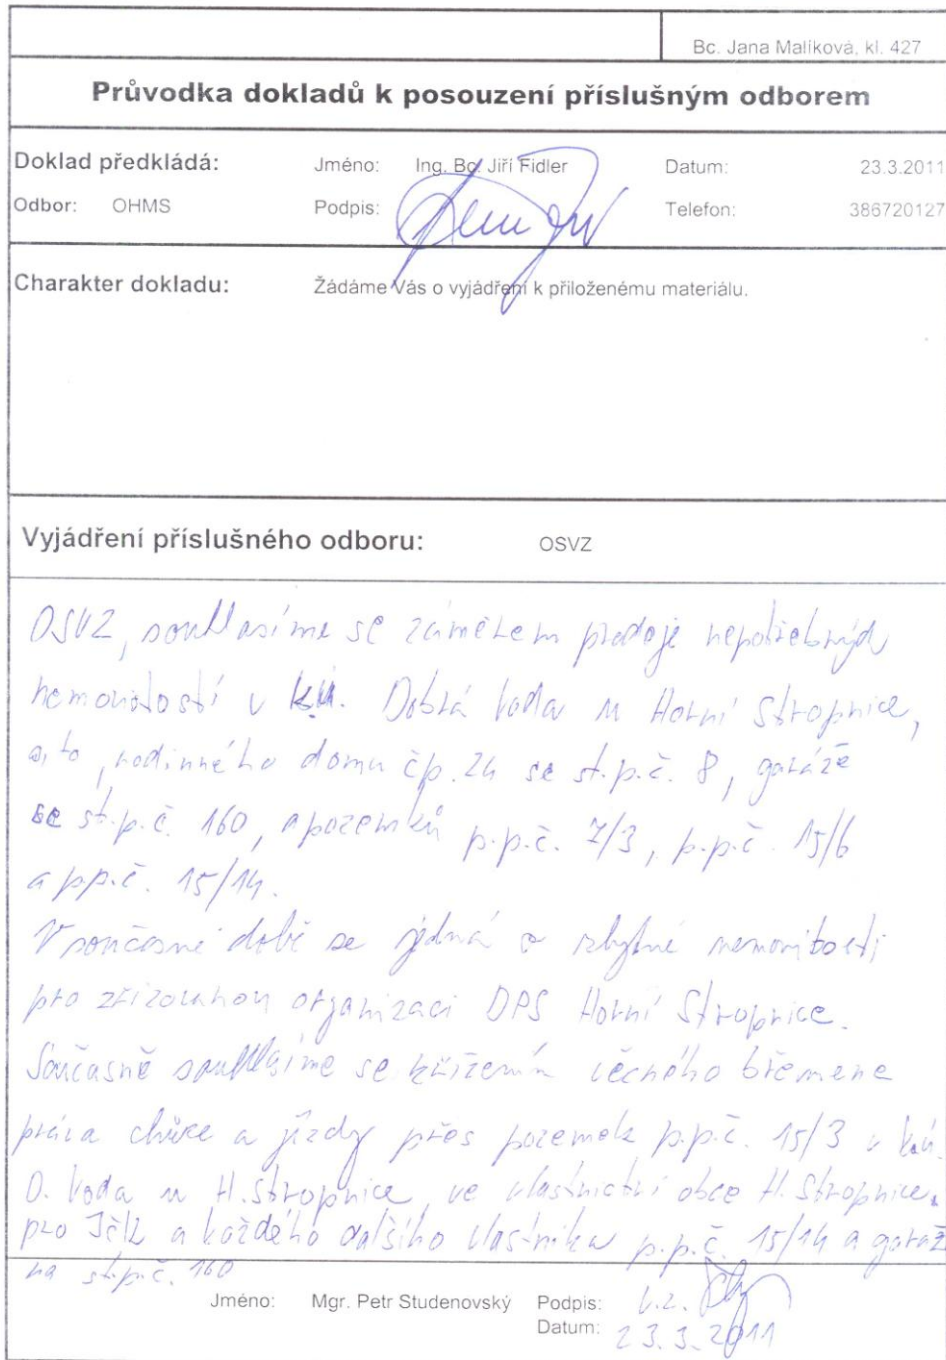 Bc. Jana Malíková, kl. 427
Průvodka dokladů k posouzení příslušným odborem
Doklad předkládá: Jméno: Ing. Bc. Jiří Fidler Datum: 23.3.2011
Odbor: OHMS Podpis: Telefon: 386720127
Charakter dokladu: Žádáme Vás o vyjádření k přiloženému materiálu.
Vyjádření příslušného odboru: OSVZ
OSVZ, souhlasíme se záměrem prodeje nepotřebných
nemovitostí v k.ú. Dobrá Voda u Horní Stropnice,
a to, rodinného domu čp. 24 se st.p.č. 8, garáže
se st.p.č. 160, a pozemků p.p.č. 7/3, p.p.č. 15/6
a p.p.č. 15/14.
V současné době se jedná o zbytné nemovitosti
pro zřizovanou organizaci DPS Horní Stropnice.
Současně souhlasíme se zřízením věcného břemene
práva chůze a jízdy přes pozemek p.p.č. 15/3 v k.ú.
D. Voda u H. Stropnice, ve vlastnictví obce H. Stropnice,
pro Jčk a každého dalšího vlastníka p.p.č. 15/14 a garáž
na st.p.č. 160
Jméno: Mgr. Petr Studenovský Podpis: v.z.
Datum: 23.3.2011